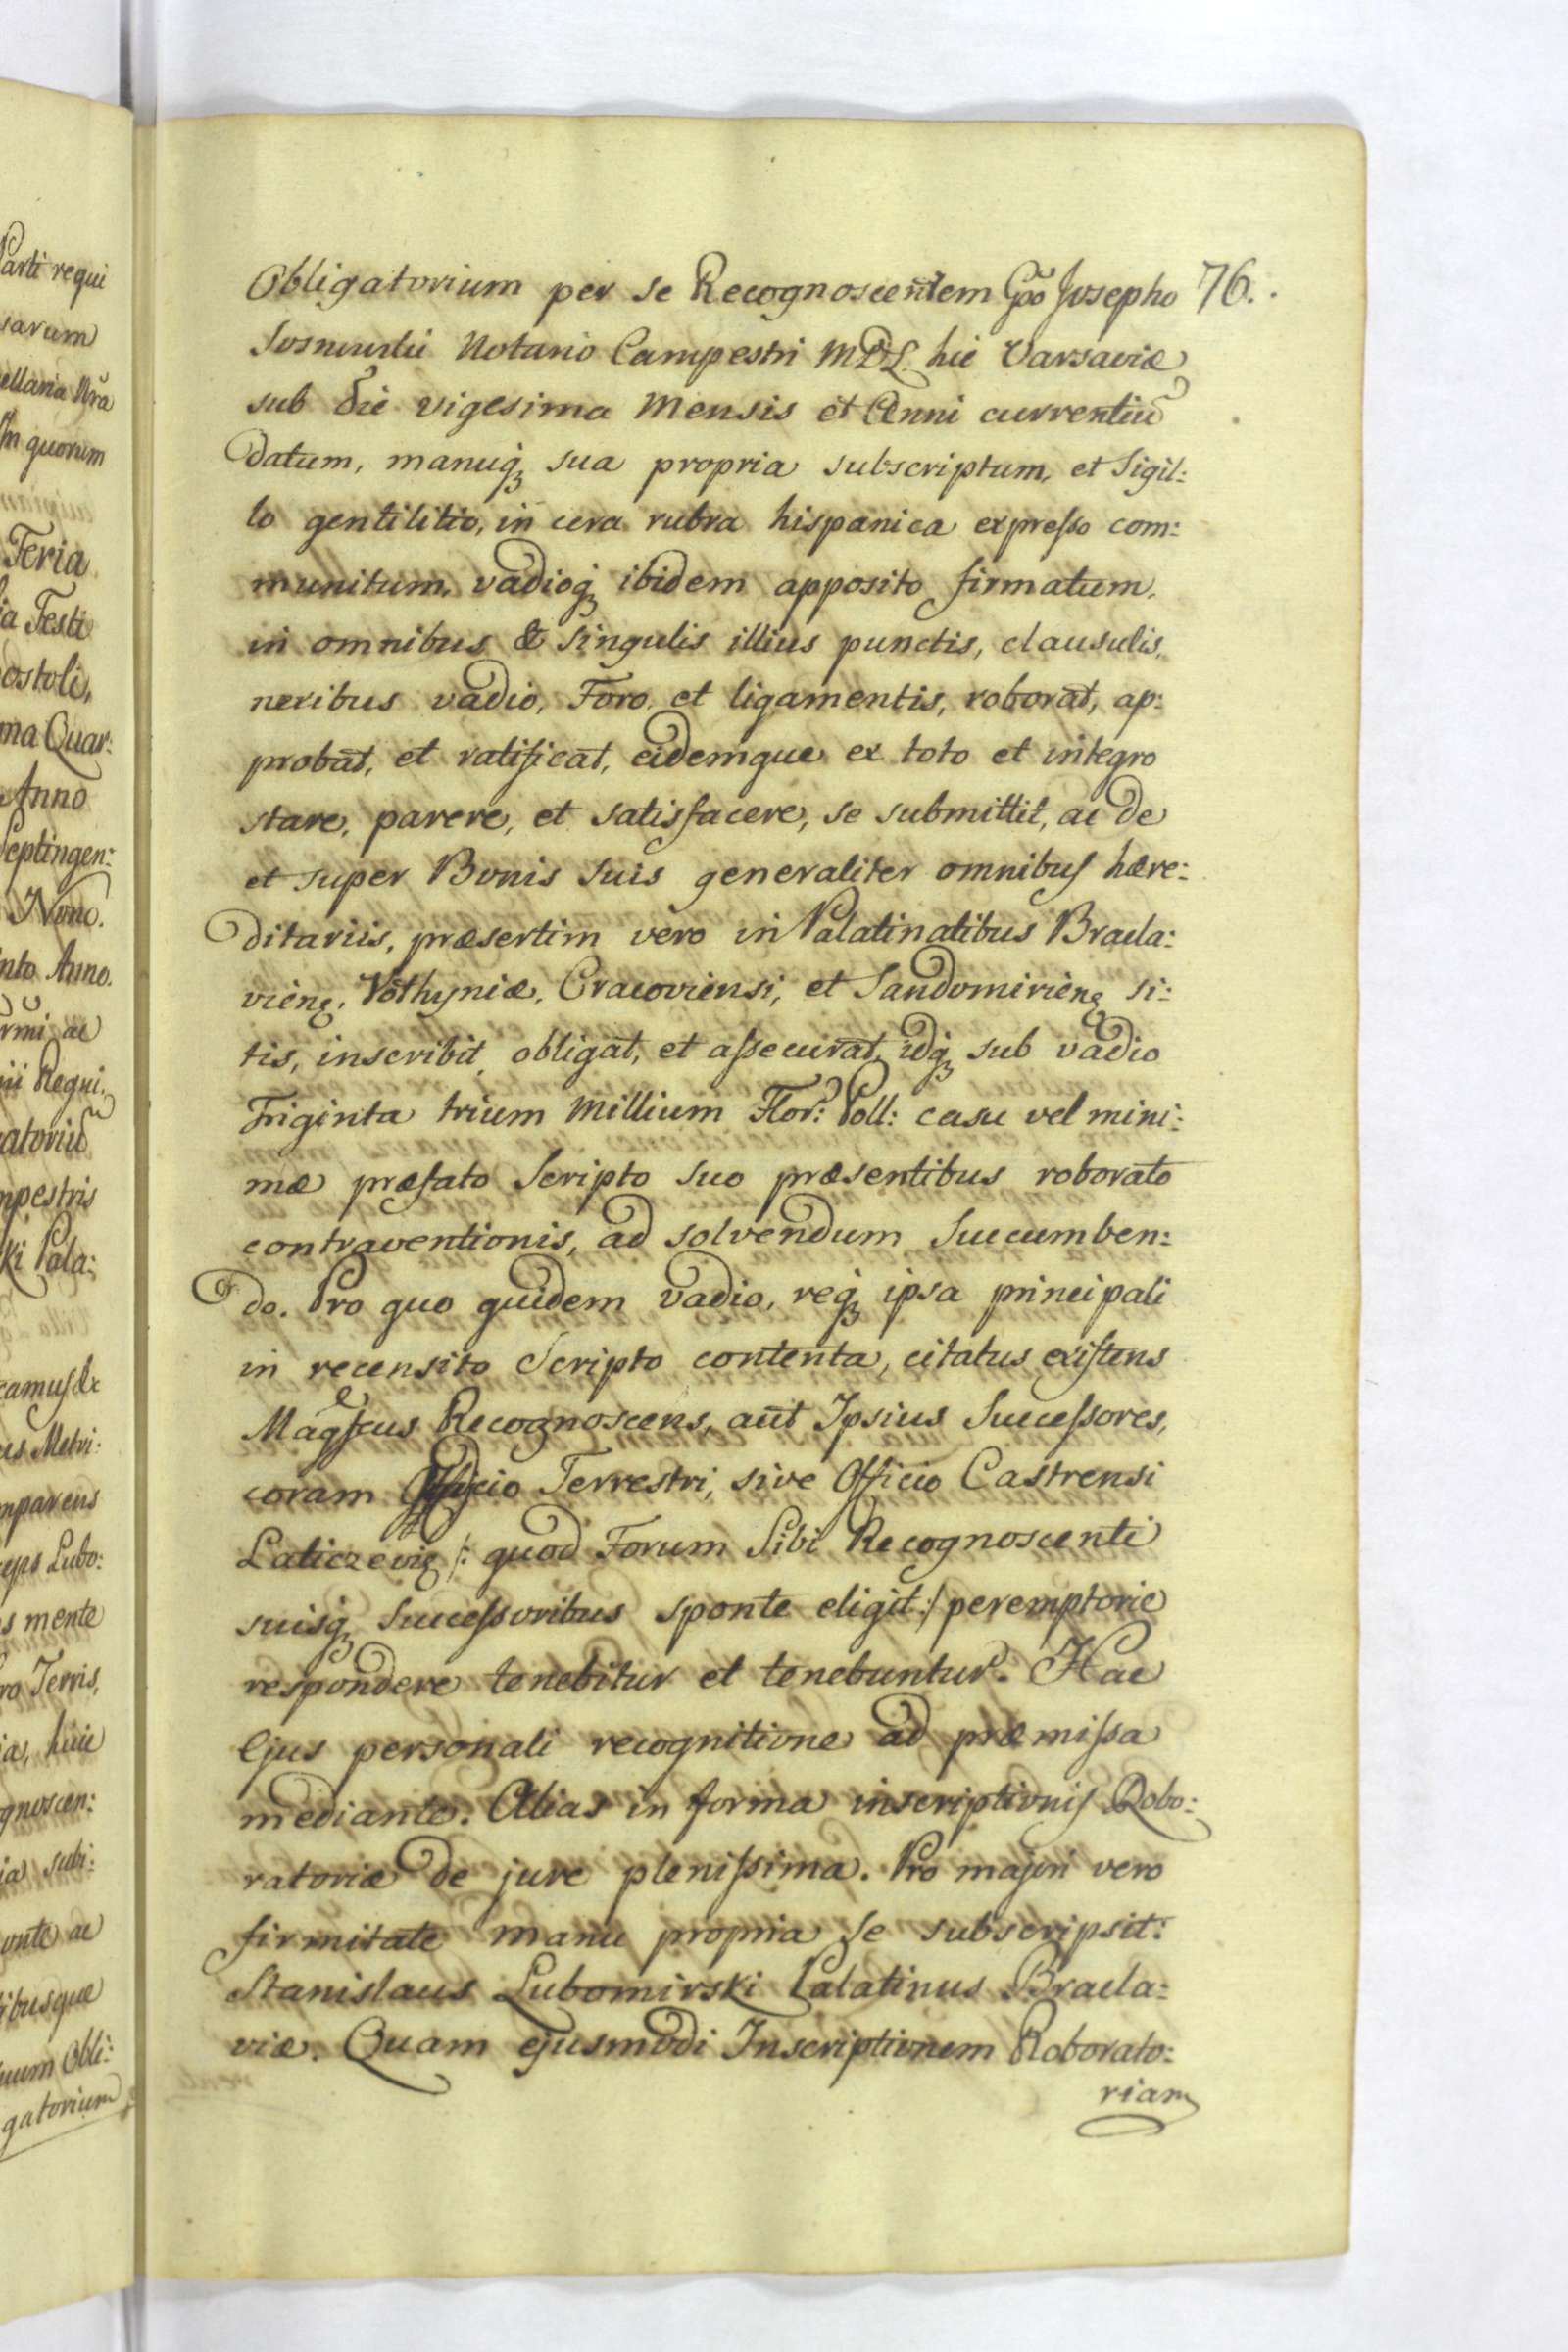 Parti requi
sarum
ellaria Nrã
In quorum
Feria
ia Festi
ostoli,
ma Quar:
Anno
Septingen:
Nono.
nto Anno.
rmi ac
ii Regni,
atoriũ
mpestris
ki Pala:
camus &
us Metri:
mparens
eps Lubo:
s mente
ro Terris,
ia, huic
gnoscen:
ia subi:
onte ac
ibusque
uum Obli:
gatorium
Obligatorium per se Recognoscentem Gõo Josepho 76.
Sosnowski Notario Campestri MDL. hic Varsaviæ
sub die vigesima Mensis et Anni currentiũ
datum, manuq; sua propria subscriptum, et Sigil:
lo gentilitio, in cera rubra hispanica expresso com:
munitum, vadioq; ibidem apposito firmatum,
in omnibus & singulis illius punctis, clausulis,
nexibus vadio, Foro, et ligamentis, roborat, ap:
probat, et ratificat, eidemque ex toto et integro
stare, parere, et satisfacere, se submittit, ac de
et super Bonis suis generaliter omnibus hære:
ditariis, præsertim vero in Palatinatibus Bracla:
vien̄, Volhyniæ, Cracoviensi, et Sandomirien̄ si:
tis, inscribit, obligat, et assecurat, idq; sub vadio
Triginta trium Millium Flor: Poll: casu vel mini:
mæ præfato Scripto suo præsentibus roborato
contraventionis, ad solvendum succumben:
do. Pro quo quidem vadio, req; ipsa principali
in recensito Scripto contenta, citatus existens
Magfcus Recognoscens, aut Ipsius Successores,
coram Officio Terrestri, sive Officio Castrensi
Laticzevien̄ /: quod Forum Sibi Recognoscenti
suisq; Successoribus sponte eligit :/ peremptorie
respondere tenebitur et tenebuntur. Hac
Ejus personali recognitione ad præmissa
mediante. Alias in forma inscriptionis Robo:
ratoriæ de jure plenissima. Pro majori vero
firmitate manu propria se subscripsit:
Stanislaus Lubomirski Palatinus Bracla:
viæ. Quam ejusmodi Inscriptionem Roborato:
riam